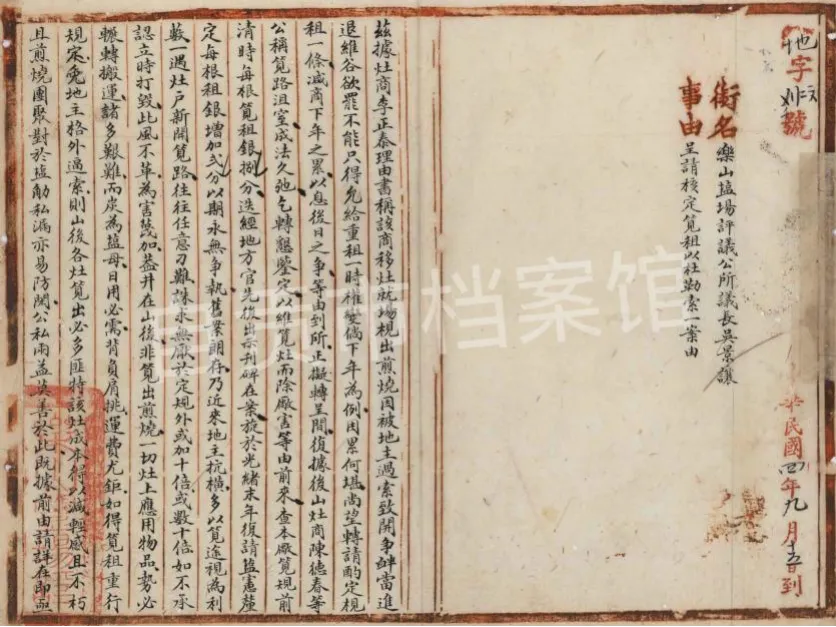 地字 號
銜名
樂山鹽場評議公所議長吳景讓
事由
呈請核定筧租以杜勒索一案由
民國四年九月 日到
茲據灶商李正泰理由書稱該商移灶就場梘出煎燒因被地主過索致開爭衅當進
退維谷欲罷不能只得允給重租一時權變倘下年為例因累何堪尚望轉請酌定規
租一條減商下年之累以息後日之爭等由到所正擬轉呈間復據後山灶商陳德春等
公稱筧路沮室成法久弛乞轉懇鑒定以維筧灶而除廠害等由前來查本廠筧規前
清時每根筧租銀捌分迭經地方官先後出示刊碑在案旋於光緒末年復請鹽憲釐
定每根租銀增加弍分以期永無爭執舊案朗存乃近來地主抗橫多以筧途視為利
藪一遇灶户新開筧路往往任意刁難疎水無厭於定規外或加十倍或數十倍如不承
認立時打毀此風不革為害蔑加蓋井在山後非筧出煎燒一切灶上應用物品勢必
輾轉搬運諸多艱難而炭為鹽母日用必需背負肩挑運費尤鉅如得筧租重行
規定免地主格外過索則山後各灶筧出必多匪特該灶成本得以減輕感且不朽
且煎燒團聚對於鹽觔私漏亦易防閑公私兩益莫善於此既據前由請詳在即亟
市档案馆